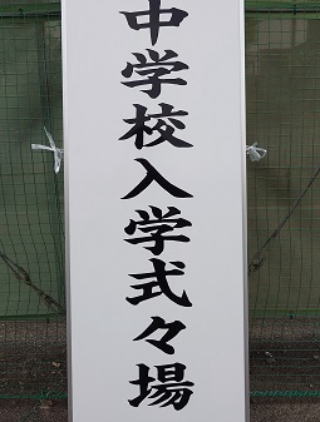 中学校入学式々場